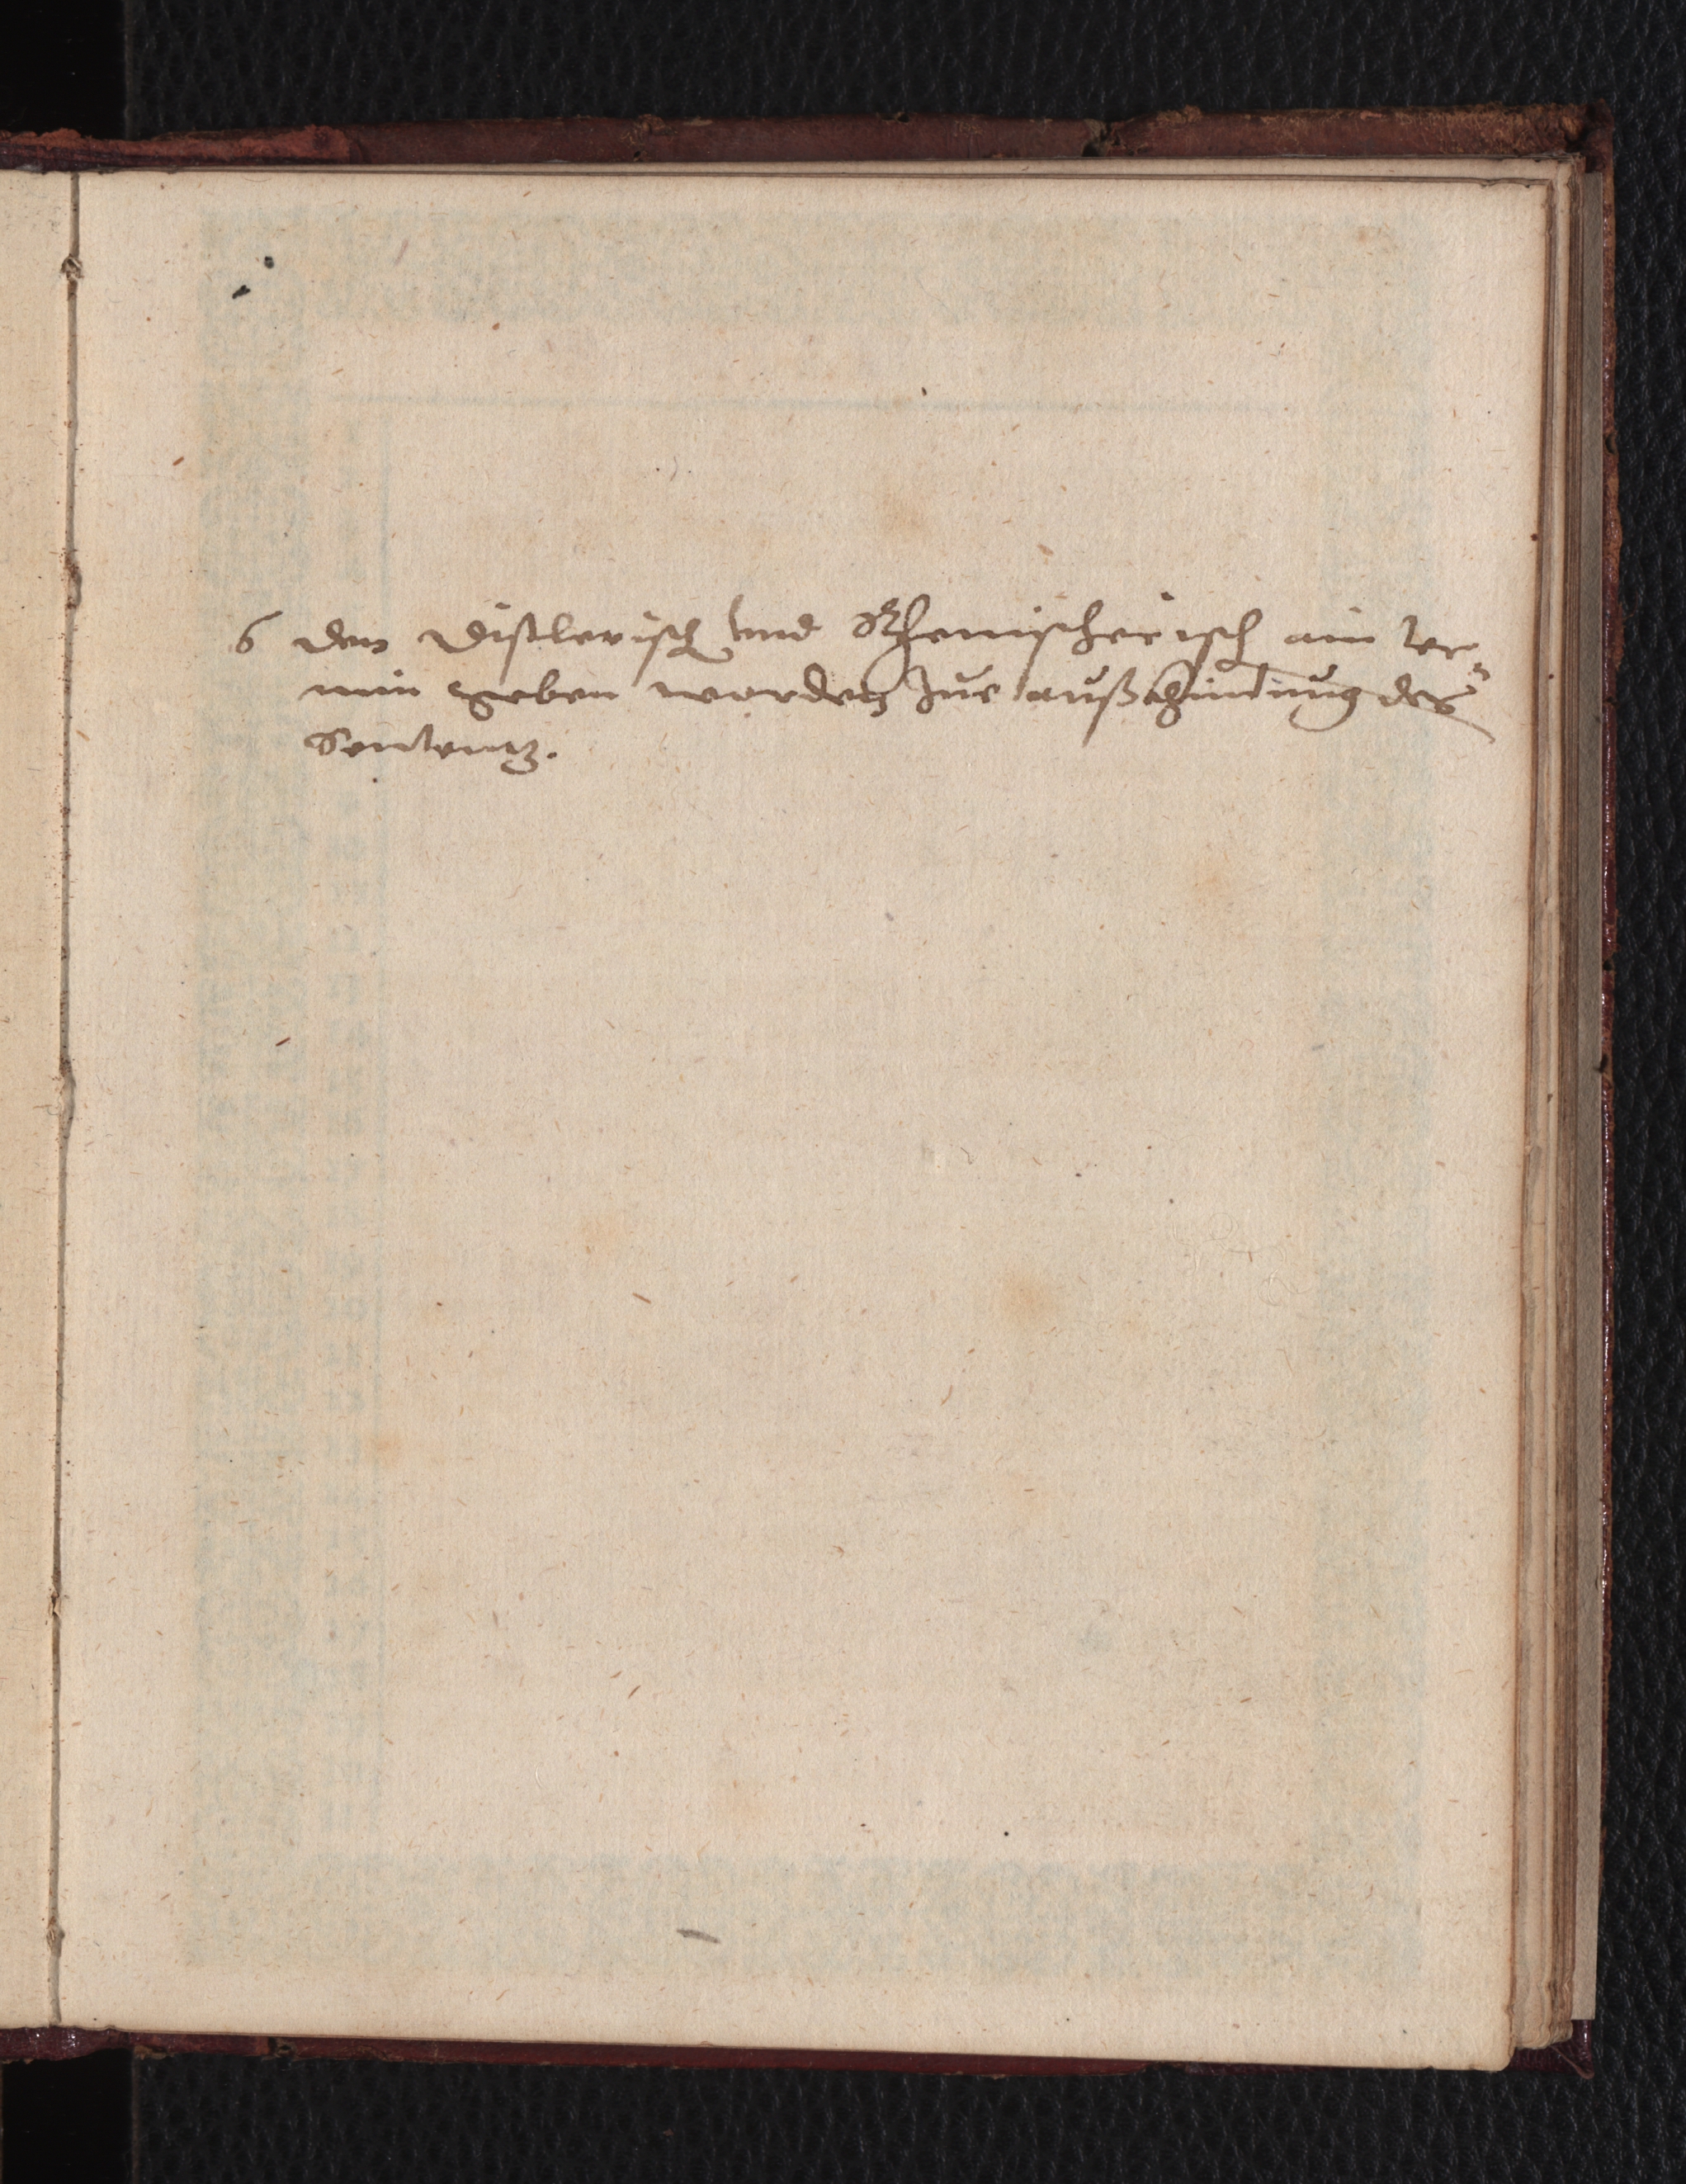 6 den Distlerisch und Rhemischerisch ain ter¬
min geben worden zur außkhindung der
Sententz.